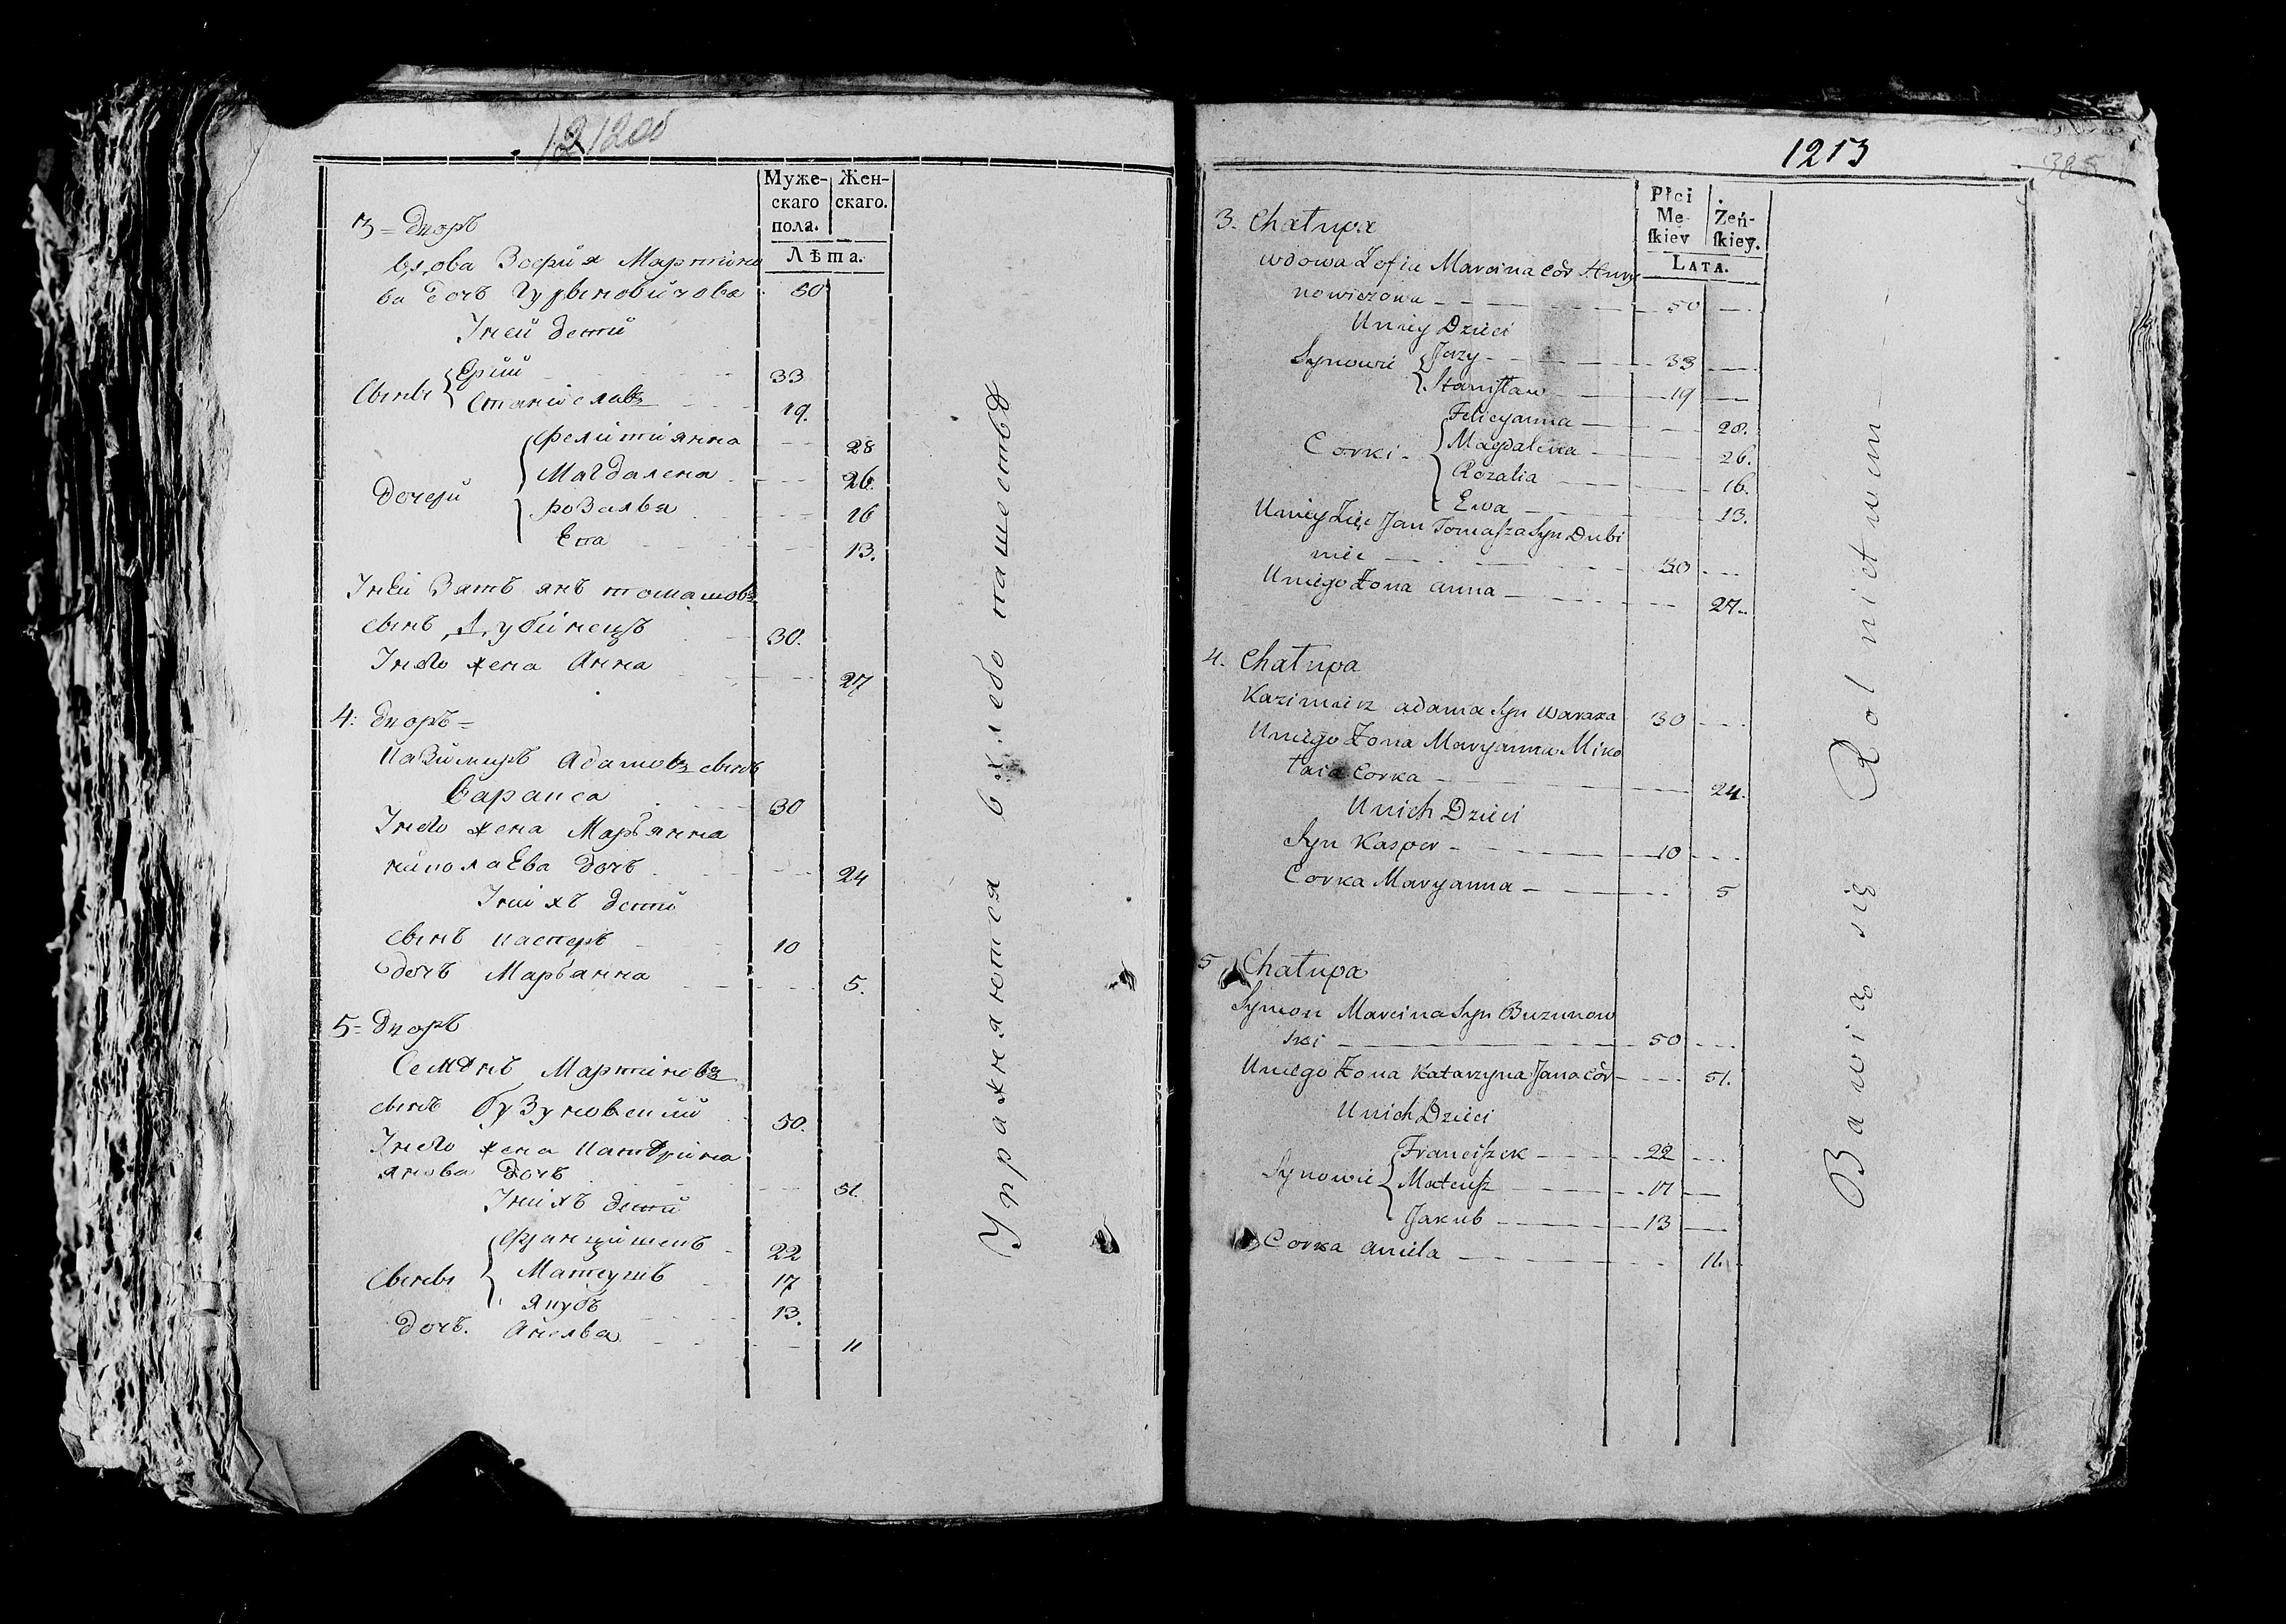 1212об
Муже-
скаго
пола.
Жен-
скаго.
Лѣта.
3 = дворъ
вдова Зофия Мартино
ва дочь Гурвиновичова 50
У ней дети
Сыны Ерий 33
Станиславъ 19.
Дочери Фелитиянна 28
Магдалена 26.
розалья 16
Ева 13.
У ней Зять янъ томашовъ
сынъ Дубинецъ 30.
У него жена Анна 27
4: дворъ =
Казимиръ Адамовъ сынъ
Варакса 30
У него жена Марьянна
николаева дочь 24
У нихъ дети
сынъ каспоръ 10
дочь Марьянна 5.
5 = дворъ
Семонъ Мартиновъ
сынъ бузуновский 50.
У него жена Катерина
янова дочь 51.
У нихъ дети
Сыны Францишекъ 22
Матеушъ 17
якубъ 13.
дочь. Анелья 11
Упражняются в хлебопашестве
1213
385
Płci
Mę-
ſkiey
Żeń-
ſkiey.
LATA.
3. Chałupa
wdowa Zofia Marcina cór
nowiczowa 50
U niey Dzieci
Synowie Jerzy 33
Staniſław 19
Corki Felicyanna 28.
Magdalena 26.
Rozalia 16.
Ewa 13.
U niey Zięć Jan Tomaſza Syn Dubi
niec 30
U niego Żona anna 27
4. Chałupa
Kazimierz adama Syn Waraxa 30
U niego Żona Maryanna Miko
łaia Corka 24.
U nich Dzieci
Syn Kasper 10
Corka Maryanna 5
5 Chałupa
Symon Marcina Syn Buzunow
ski 50
U niego Żona Katarzyna Jana cór 51.
U nich Dzieci
Synowie Franciſzek 22
Mateuſz 17
Jakub 13
Corka aniela 11.
Bawią się Rolnictwem